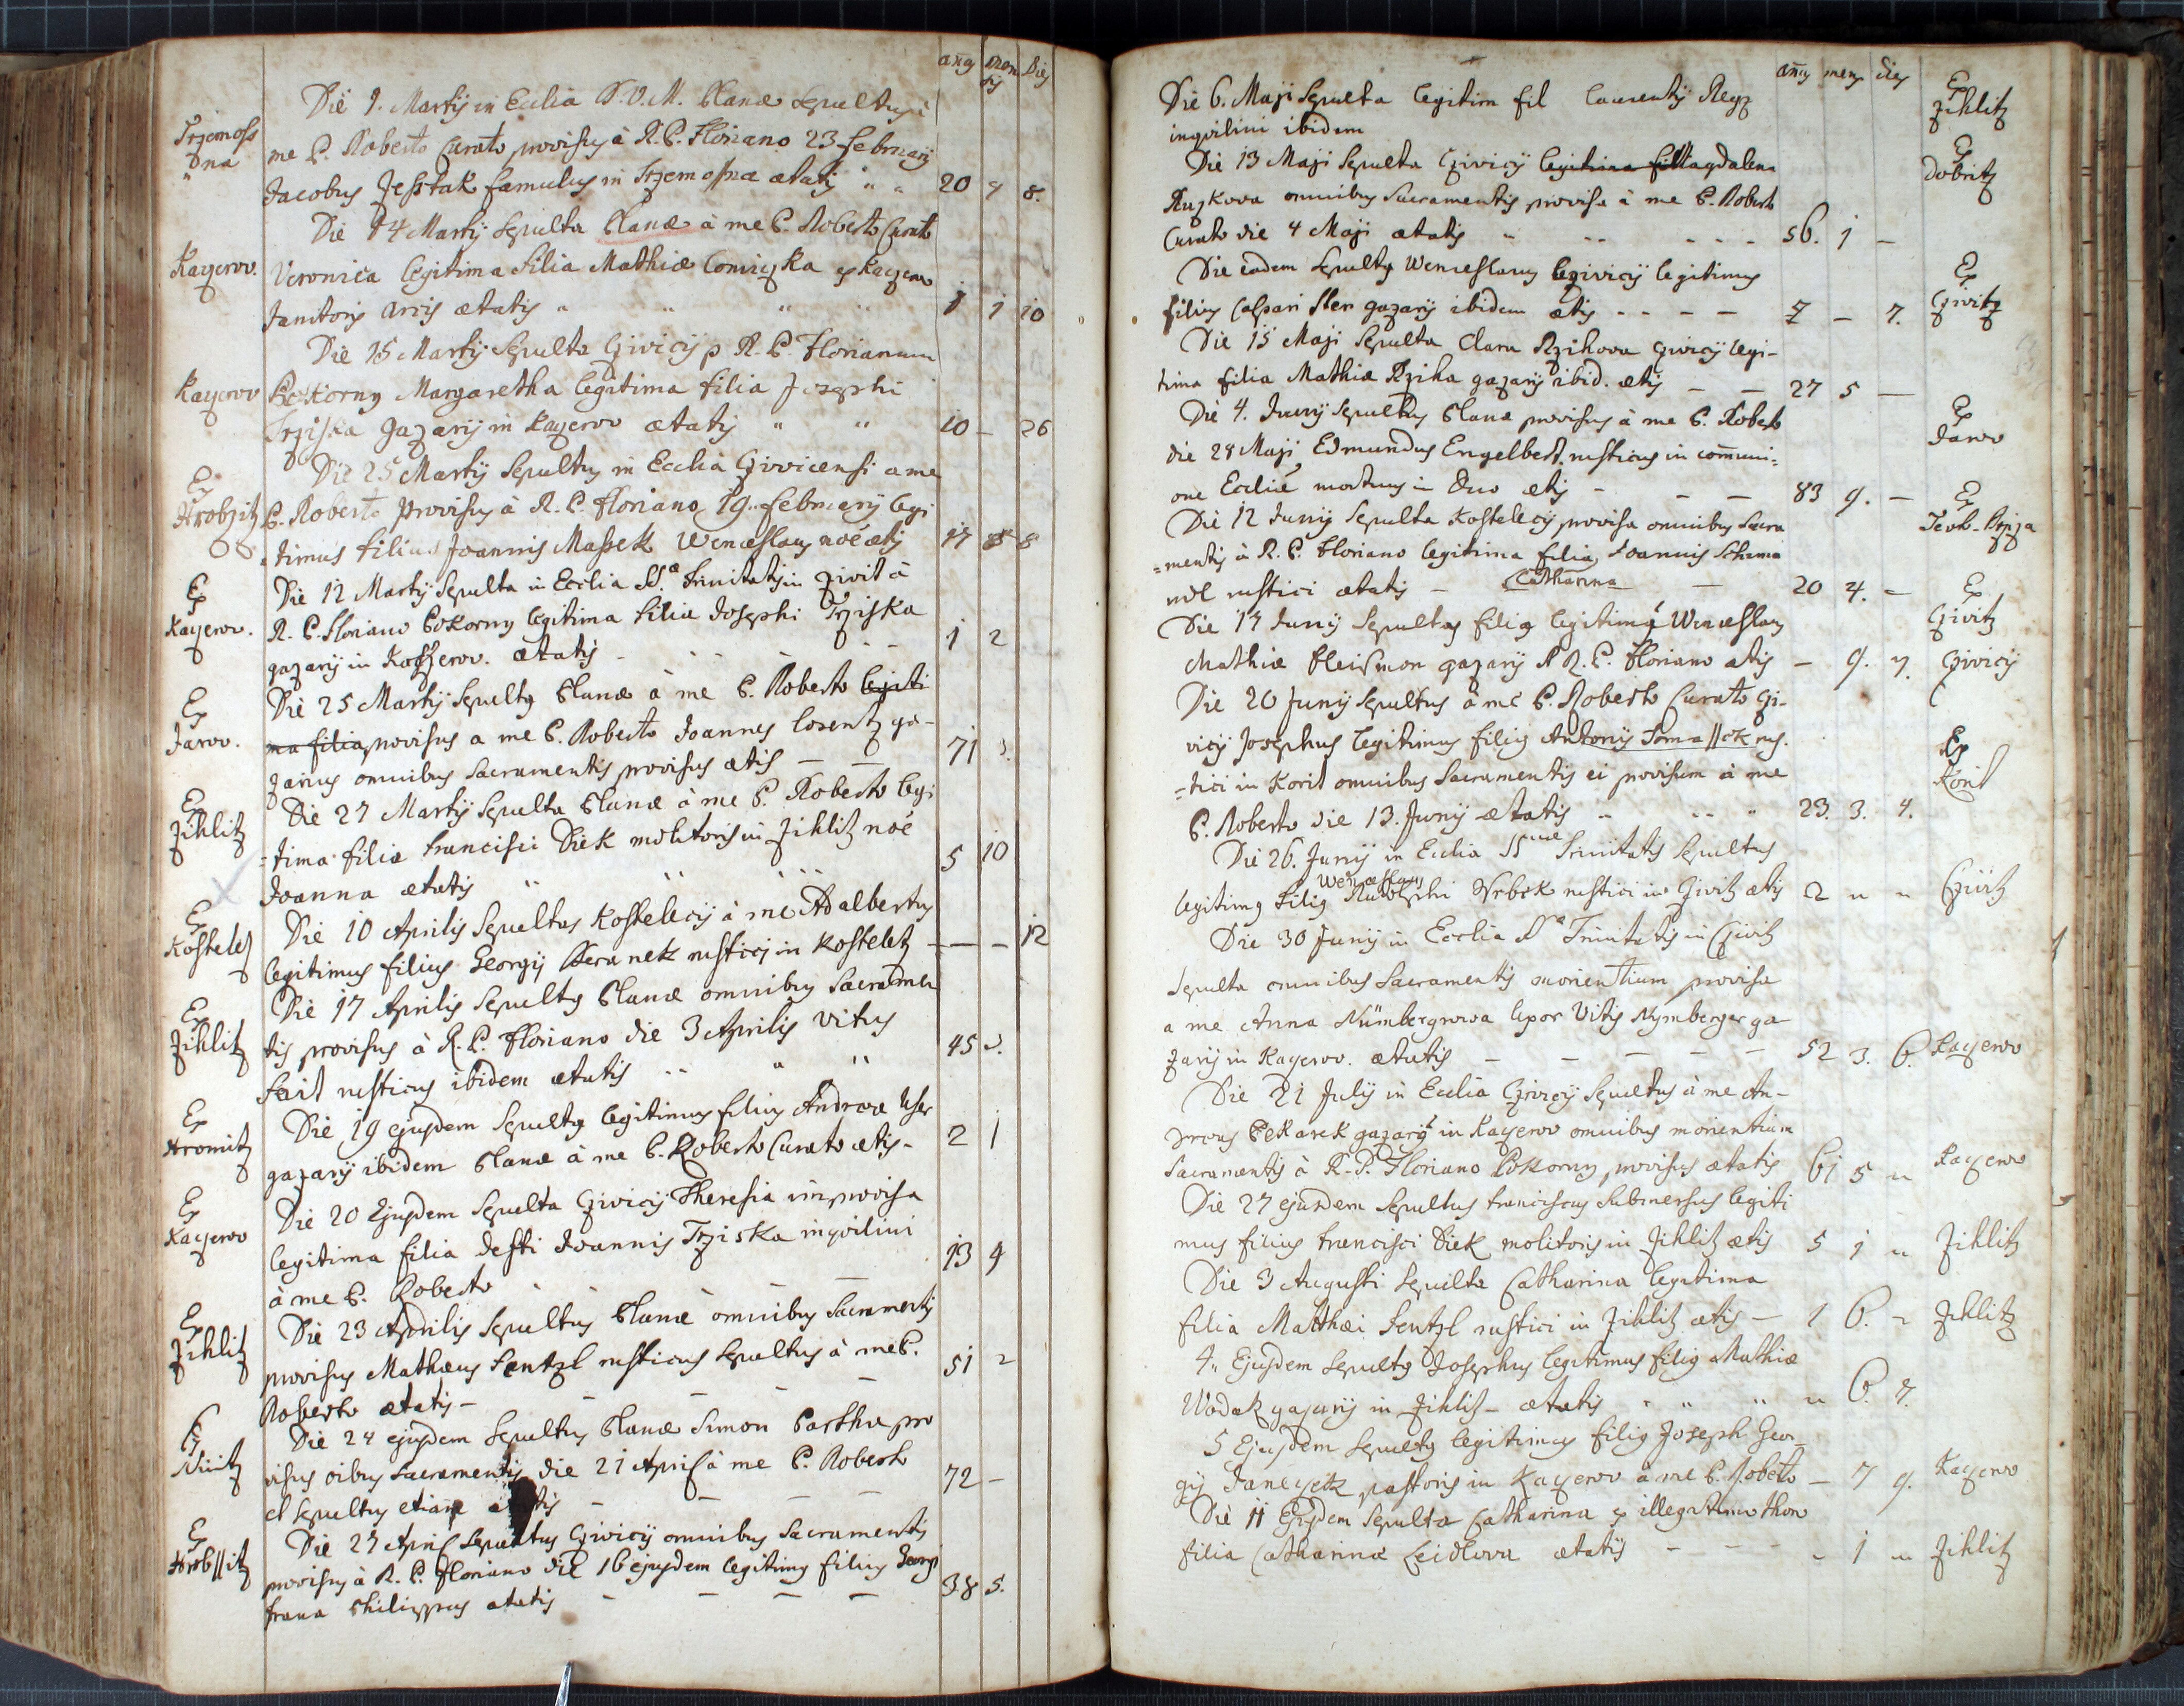 anny men sis Dies
Die 1. Martij in Ecclia B.V.M. Planæ sepultus à
Trzemoss
na
me P. Roberto Curato provisus à R.P. Floriano 23 February
Jacobus Jesstak famulus in Trzemosna ætatis " " 20 9 8.
Die 14 Martij sepulta Planæ à me P. Roberto Curato
Kaczerov. Veronica legitima filia Mathiæ ex Kaczerov
Janitoris arcis ætatis " " " " 1 1 10
Die 15 Martij sepulta Cziviczij p R.P. Florianum
Kaczerov Pokorny Margaretha legitima filia Josephi
Trziska gazarij in Kaczerov ætatis " " 10 – 26
Die 25 Martij sepultus in Ecclia Czivicensi a me
Ex
Hrobczitz P. Roberto provisus à R.P. Floriano 19. february legi
timus filius Joannis Massek Wenceslaus noẽ ætis 17 8
Ex Die 12 Martij sepulta in Ecclia SS.æ Trinitatis in Zivit à
Kaczerov. R.P. Floriano Pokorny legitima filia Josephi Trziska
gazarij in Kaczerov. ætatis - - - - - 1 2
Ex Die 25 Martij sepultus Planæ à me P. Roberto legiti
Jarov. ma filia provisus a me P. Roberto Joannes Lorentz ga-
zarius omnibus Sacramentis provisus ætis — — 71
Ex Die 27 Martij sepulta Planæ à me P. Roberto legi
Zihlitz =tima filia francisci Diek molitoris in Zihlitz noẽ
Joanna ætatis " " " 5 10
Ex Die 10 Aprilis sepultus Kostelecij à me Adalbertus
Kosteletz legitimus filius Georgij Beranek rustici in Kosteletz — — – 12
Ex Die 17 Aprilis sepultus Planæ omnibus Sacramen
Zihlitz tis provisus à R.P. Floriano die 3 Aprilis Vitus
Fait rusticus ibidem ætatis " " " 45
Ex Die 19 ejusdem sepultus legitimus filius Andreæ
Hromitz gazarij ibidem Planæ à me P. Roberto Curato ætis - 2 1
Ex Die 20 Ejusdem sepulta Cziviczij Theresia improvisa
Kaczerov legitima filia defti Joannis Trziska inqvilini
à me P. Roberto - - - 13 9
Ex Die 23 Aprilis sepultus Planæ omnibus Sacramentis
Zihlitz provisus Mathæus Sentzl rusticus sepultus à me P.
Roberto ætatis - — — — — 51 2
Ex Die 24 ejusdem sepultus Planæ Simon Bartha pro
visus oibus Sacramentis die 21 April à me P. Roberto
et sepultus etiam – – – – 72 –
Ex Die 27 April sepultus Cziviczij omnibus Sacramentis
provisus à R.P. Floriano die 16 ejusdem legitimus filius Georgij
frana Philippus ætatis - - - - 38 5.
annis mens dies
Die 6. Maji sepulta legitim fil Laurentij Ex
inqvilini ibidem Zihlitz
Die 13 Maji sepulta Cziviczij legitima fil Magdalena Ex
Dobritz
Ruzkova omnibus Sacramentis provisa à me P. Roberto
Curato die 4 Maji ætatis - - - - - 56. 1 –
Die eadem sepultus Wenceslaus Cziviczij legitimus Ex
filius Caspari gazarij ibidem ætis - - - – 7 – 7. Czivitz
Die 15 Maji sepulta Clara Rzihova Cziviczij legi-
tima filia Mathiæ Rziha gazarij ibid. ætis – – 27 5 –
Die 4. Junij sepultus Planæ provisus à me P. Roberto Ex
die 28 Maji Edmundus Engelbert rusticus in com̃uni= Jarov
one Eccliæ mortuus in Dno ætis - – – 83 9. –
Die 12 Junij sepulta Kostelecij provisa omnibus Sacra Ex
=mentis à R.P. Floriano legitima filia Joannis
rustici ætatis – Catharina – 20 4. –
Die 14 Junij sepultus filius legitimus Wenceslaus Ex
Czivitz
Mathiæ Fleissmon gazarij à R.P. Floriano ætis – 9. 7. Cziviczij
Die 20 Junij sepultus à me P. Roberto Curato Czi-
viczij Josephus legitimus filius Antonij Tomassek rus. Ex
=tici in Korit omnibus Sacramentis ei provisum à me Korit
P. Roberto die 13. Junij ætatis - - - " 23. 3. 4.
Die 26. Junij in Ecclia SSmæ Trinitatis sepultus
Wenceslaus
legitimus filius Rudolphi Vrbek rustici in Zivitz ætis 2 " " Czivitz
Die 30 Junij in Ecclia SS.æ Trinitatis in Czivitz
sepulta omnibus Sacramentis morientium provisa
a me Anna Nümbergrova Uxor Vitis Nymberger ga
zarij in Kaczerov. ætatis – – – – – 52 3. 6. Kaczerov
Die 21 Julij in Ecclia Cziviczij sepultus à me An-
dreus Pekarek gazarius in Kaczerov omnibus morientium
Sacramentis à R.P. Floriano Pokorny provisus ætatis 61 5 " Kaczerov
Die 27 ejusdem sepultus franciscus submersus legiti
mus filius francisci Diek molitoris in Zihlitz ætis 5 1 " Zihlitz
Die 3 Augusti sepulta Catharina legitima
filia Matthæi Sentzl rustici in Zihlitz ætis – 1 6. " Zihlitz
4. Ejusdem sepultus Josephus legitimus filius Mathiæ
Wodak gazarij in Zihlitz – ætatis " " " " 6. 7.
5 Ejusdem sepultus legitimus filius Joseph Geor
gij Janeczek pastoris in Kaczerov à me P. Roberto – 7 9. Kaczerov
Die 11 Ejusdem sepulta Catharina ex illegitimo thoro
filia Catharinæ Zeidlova ætatis - - - - " 1 " Zihlitz